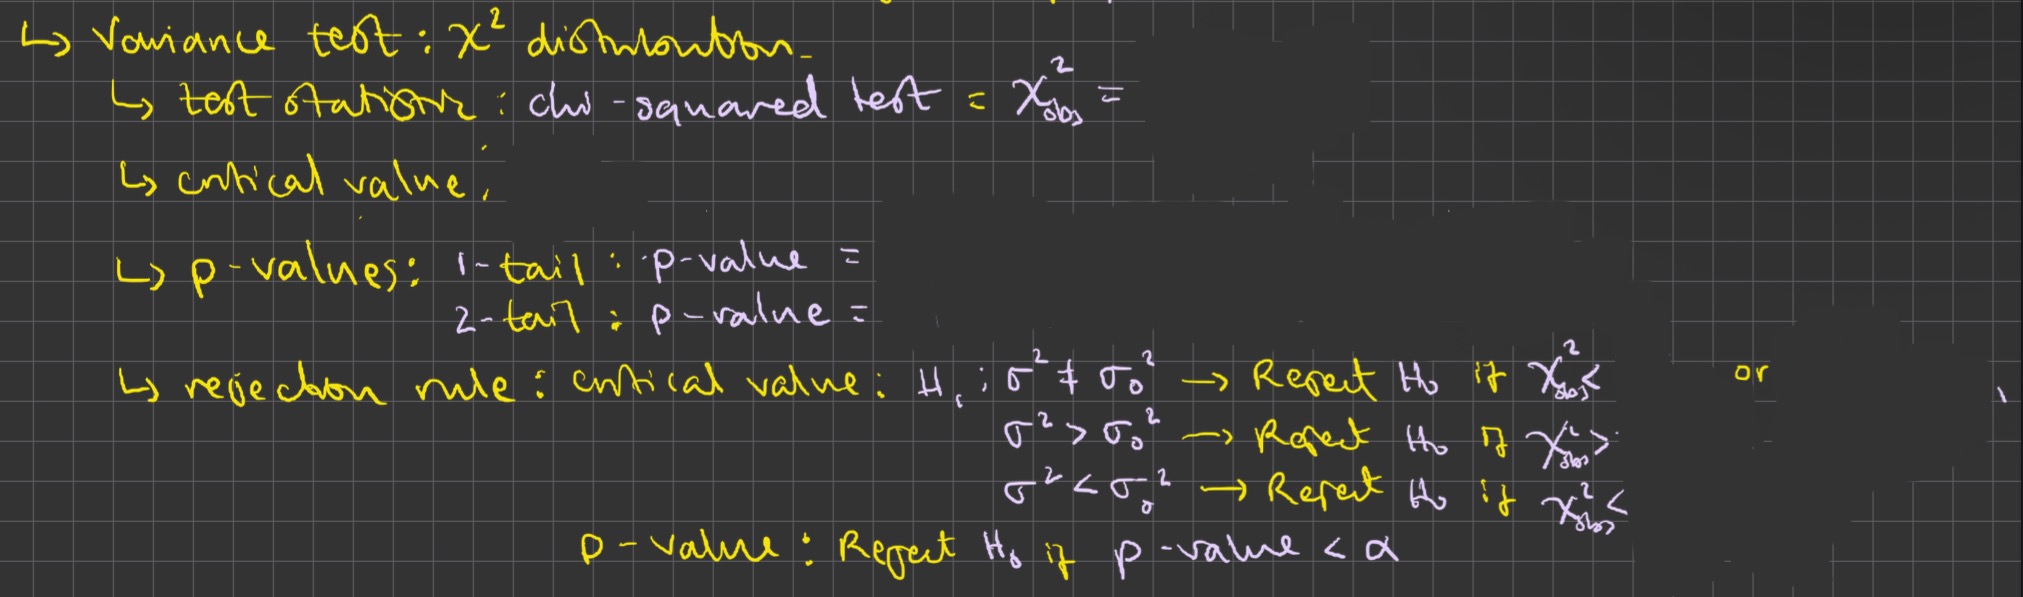 ↳ Variance test : χ² distribution.
↳ test statistic : chi-squared test = χ²obs =
↳ critical value :
↳ p-values : 1-tail : p-value =
2-tail : p-value =
↳ rejection rule : critical value : H₁ : σ² ≠ σ₀² → Reject H₀ if χ²obs < or
σ² > σ₀² → Reject H₀ if χ²obs >
σ² < σ₀² → Reject H₀ if χ²obs <
p-value : Reject H₀ if p-value < α